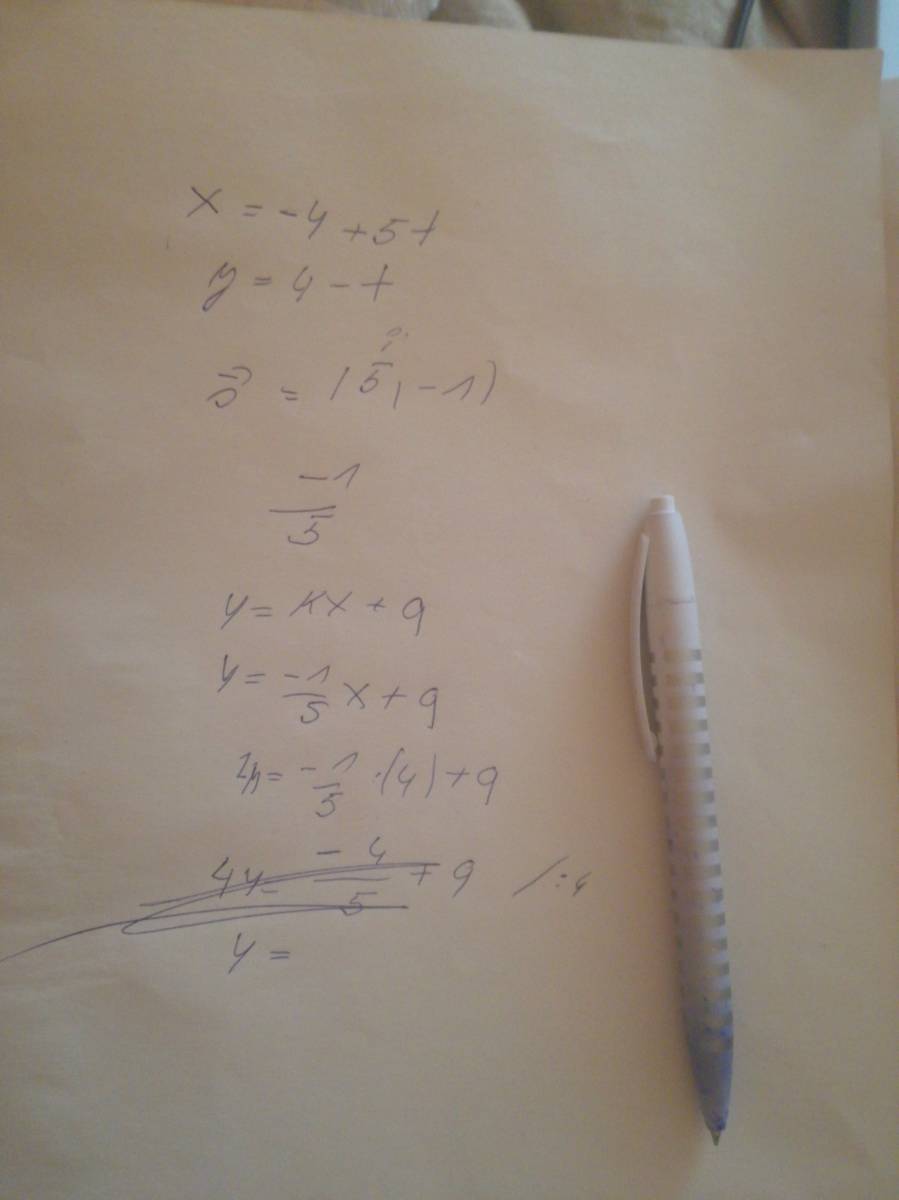 x = -4 + 5t
y = 4 - t
s⃗ = (5, -1)
-1
5
y = kx + q
y = -1/5 x + q
= -1/5 · (4) + q
4y = -4/5 + q /:4
y =